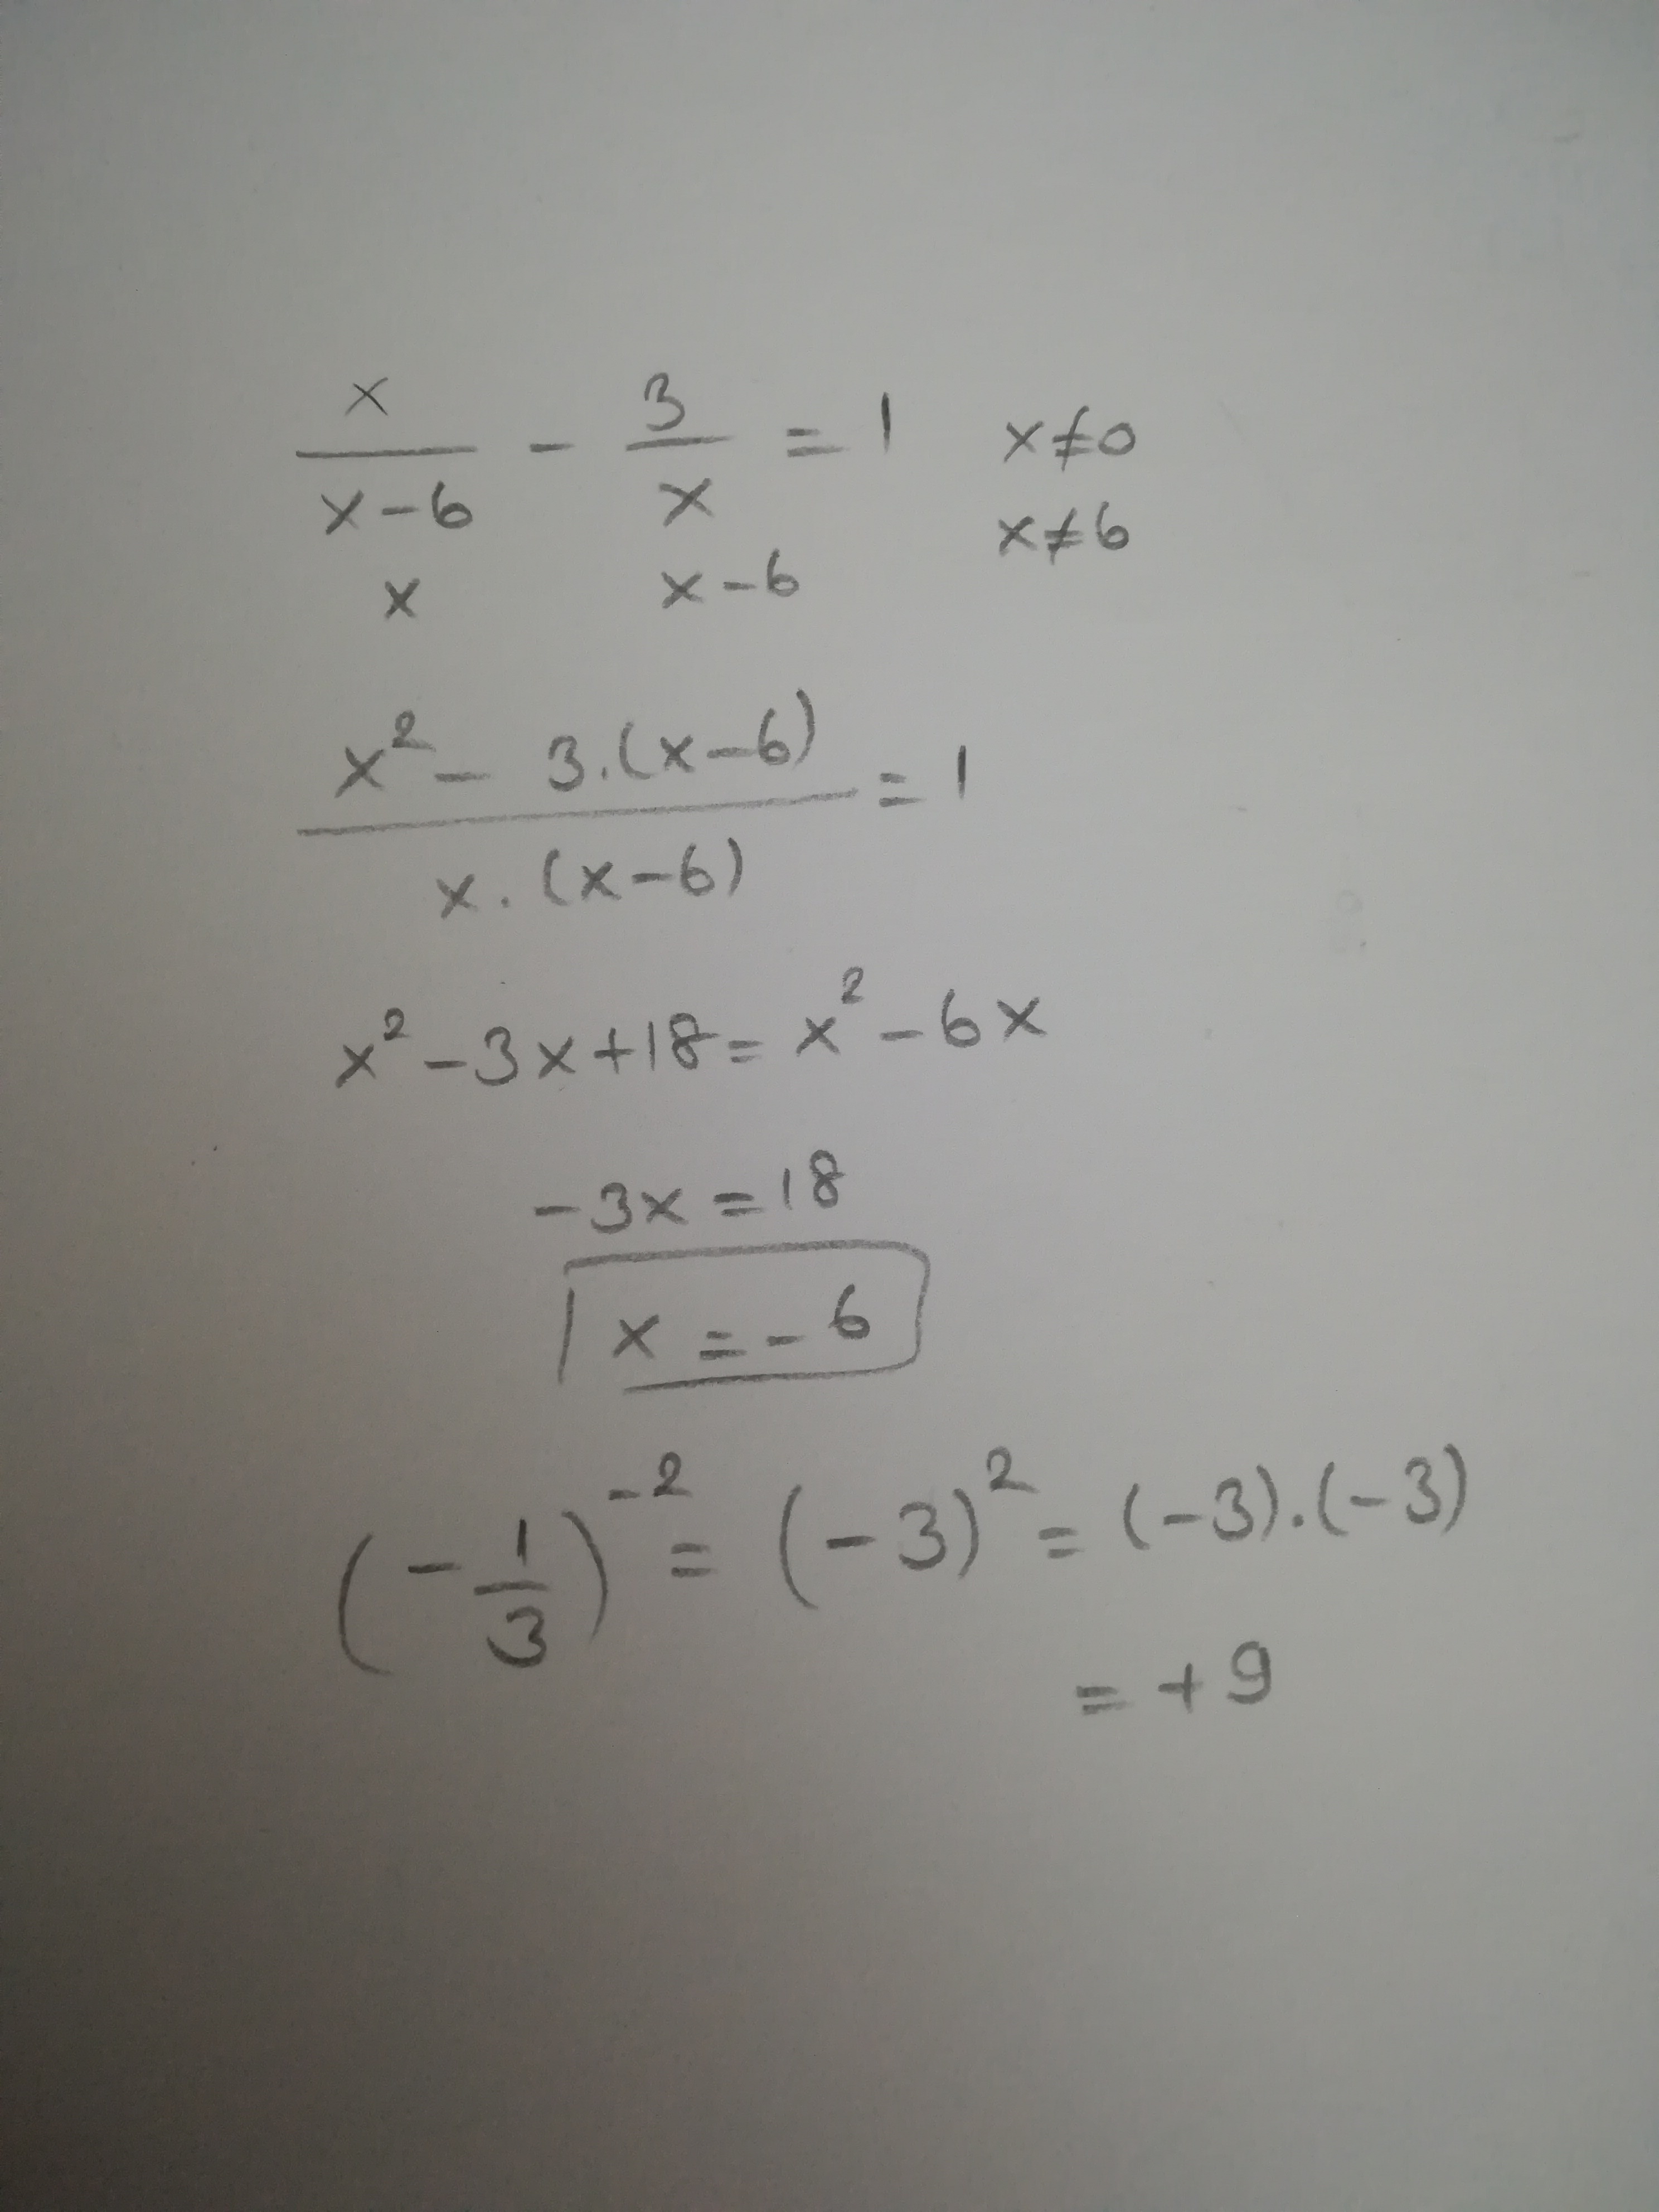 x/(x-6) - 3/x = 1   x≠0
x≠6
x   x-6
(x² - 3.(x-6))/(x.(x-6)) = 1
x² - 3x + 18 = x² - 6x
-3x = 18
x = -6
(-1/3)⁻² = (-3)² = (-3).(-3)
= +9